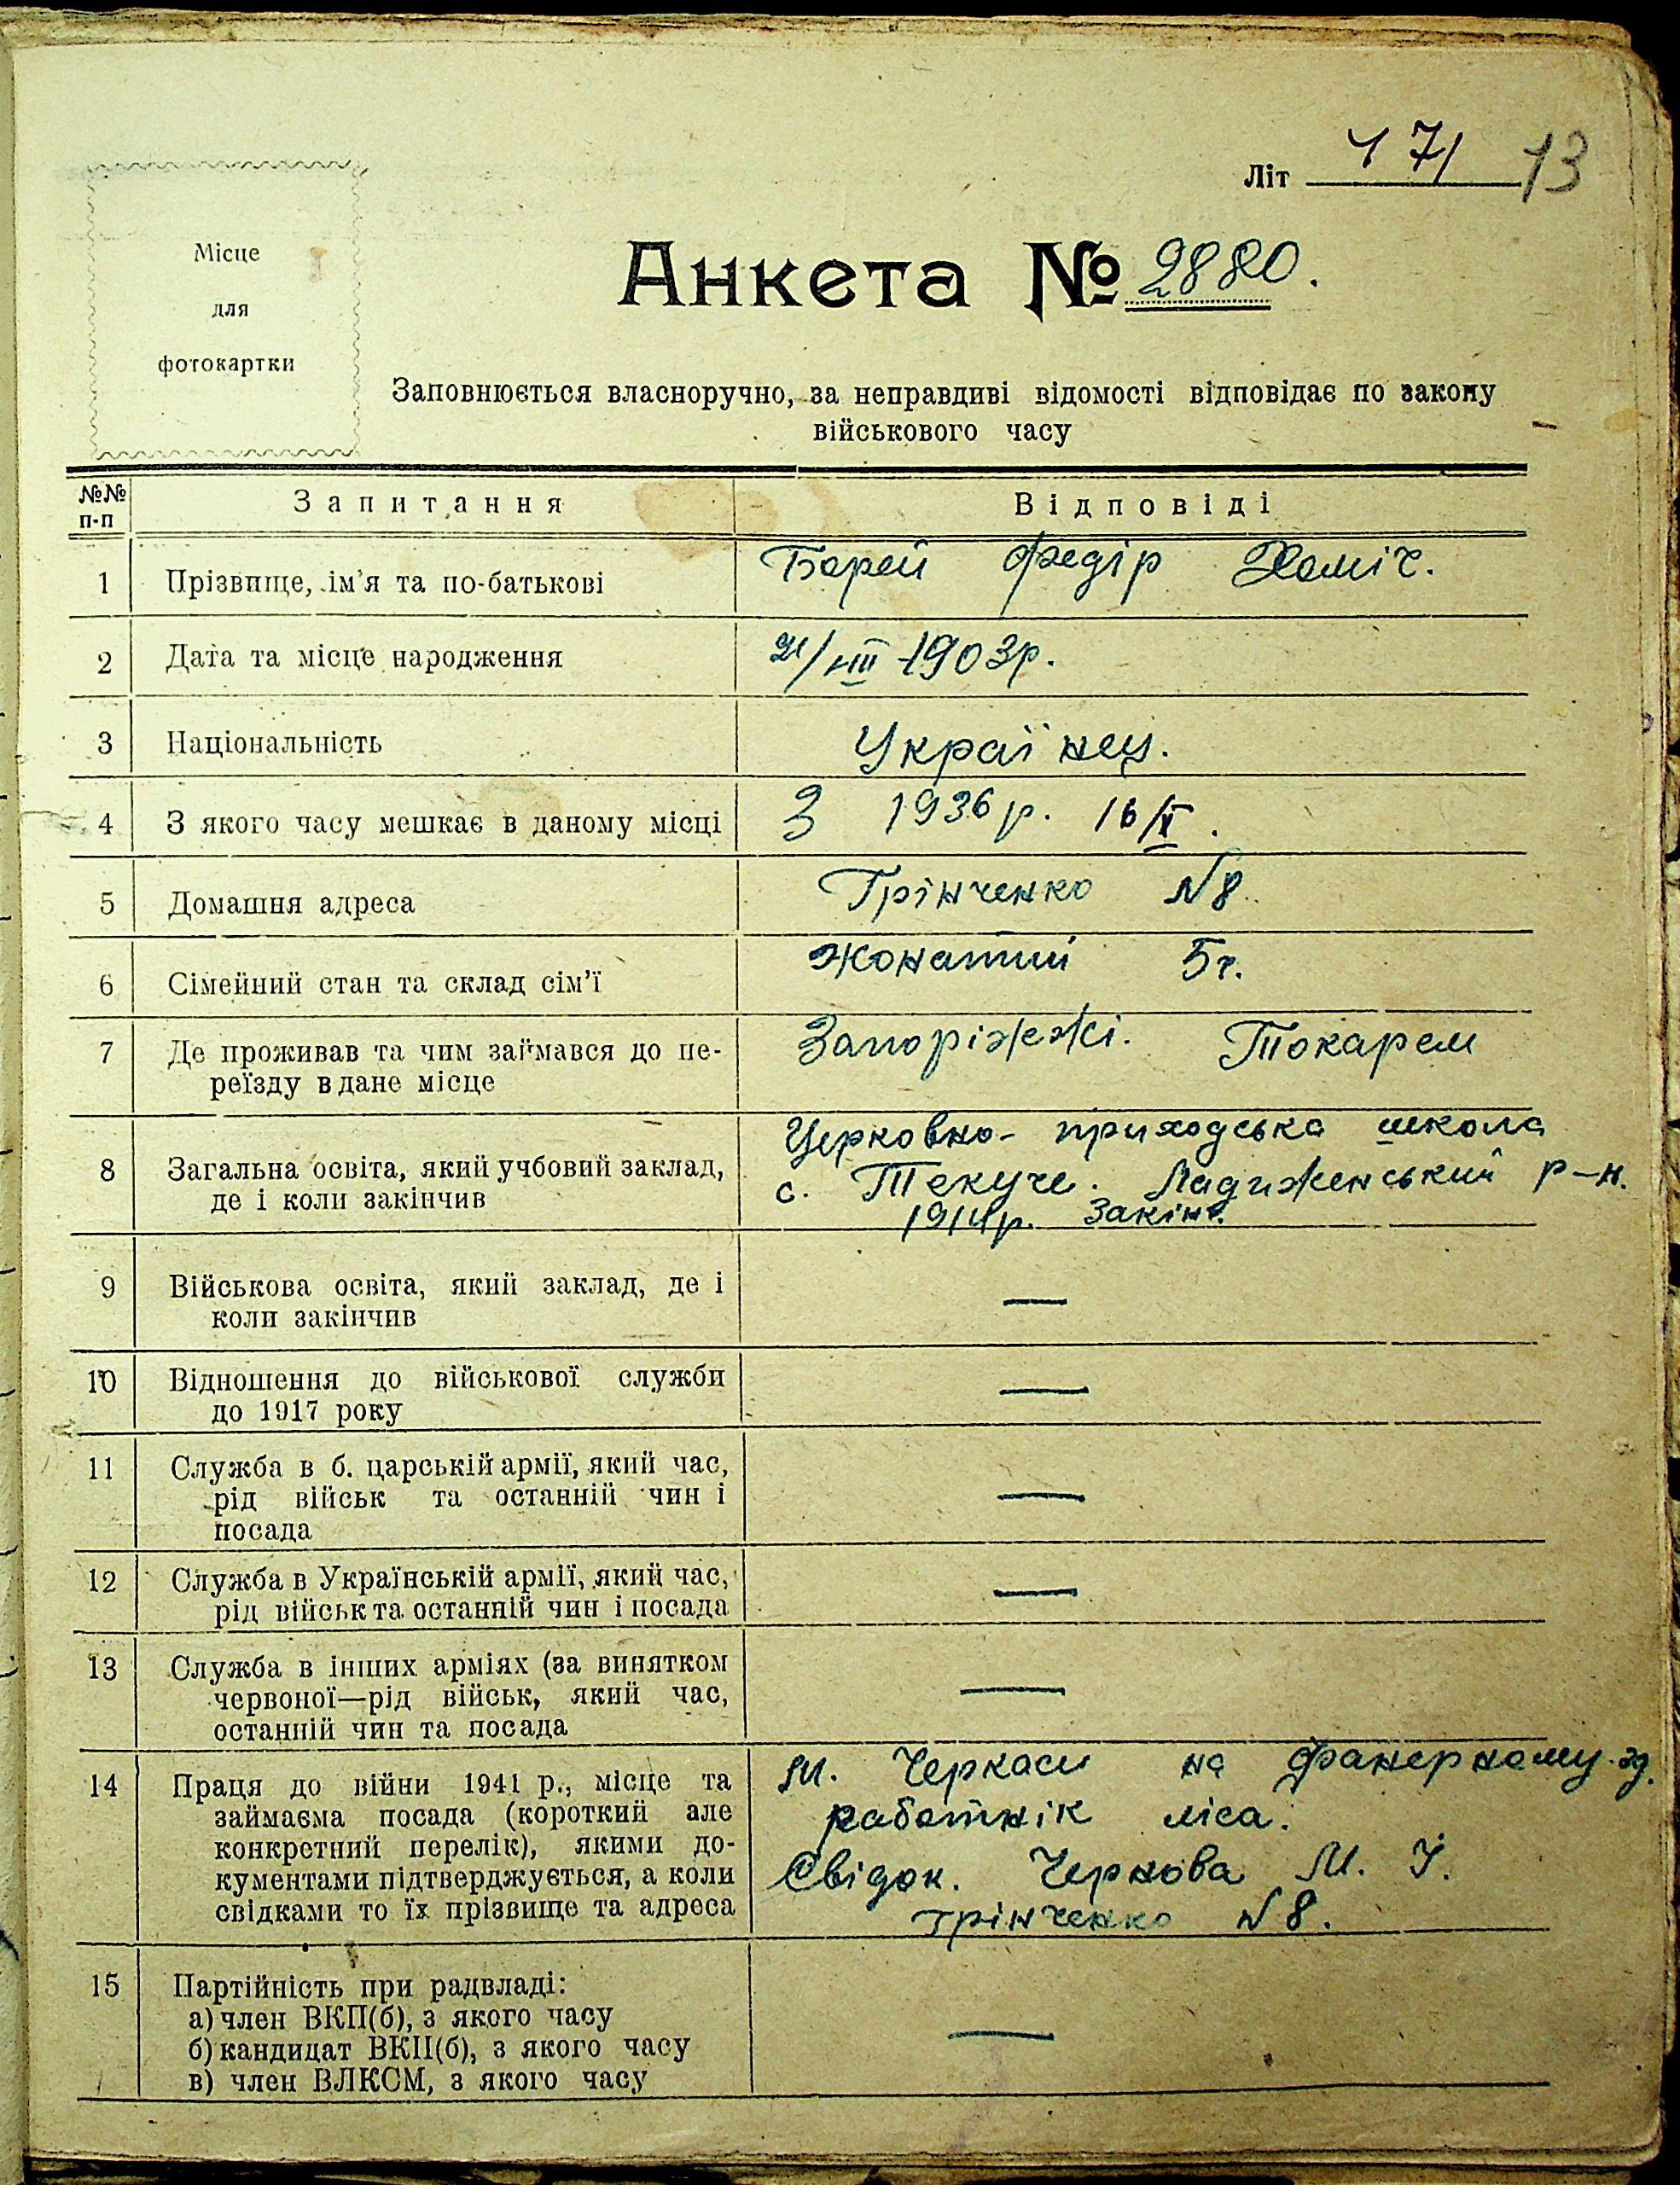 Літ 471 13
Місце
для
фотокартки
Анкета № 2880.
Заповнюється власноручно, за неправдиві відомості відповідає по закону
військового часу
№№ п-п Запитання Відповіді
1 Прізвище, ім'я та по-батькові Борей Федір Хоміч.
2 Дата та місце народження 21/VIII 1903р.
3 Національність Українец.
4 З якого часу мешкає в даному місці З 1936 р. 16/X.
5 Домашня адреса Грінченко N8.
6 Сімейний стан та склад сім'ї Жонатий 5ч.
7 Де проживав та чим займався до пе- Запоріжежі. Токарем
реїзду в дане місце
Церковно-приходська школа
8 Загальна освіта, який учбовий заклад, с. Текуче. Ладиженський р-н.
де і коли закінчив 1914р. Закінч.
9 Військова освіта, який заклад, де і —
коли закінчив
10 Відношення до військової служби —
до 1917 року
11 Служба в б. царській армії, який час, —
рід військ та останній чин і
посада
12 Служба в Українській армії, який час, —
рід військ та останній чин і посада
13 Служба в інших арміях (за винятком —
червоної—рід військ, який час,
останній чин та посада
14 Праця до війни 1941 р., місце та М. Черкаси на фанерному зд.
займаєма посада (короткий але работнік ліса.
конкретний перелік), якими до-
кументами підтверджується, а коли Свідок. Чернова М. І.
свідками то їх прізвище та адреса грінченко N8.
15 Партійність при радвладі: —
а) член ВКП(б), з якого часу
б) кандидат ВКП(б), з якого часу
в) член ВЛКСМ, з якого часу